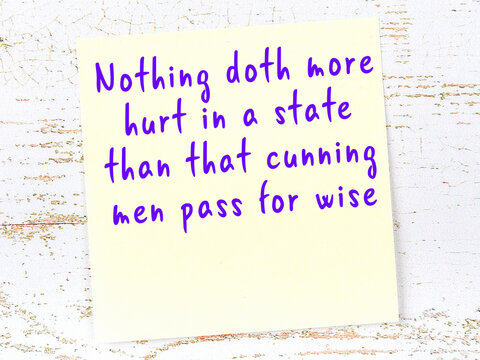 Nothing doth more
hurt in a state
than that cunning
men pass for wise